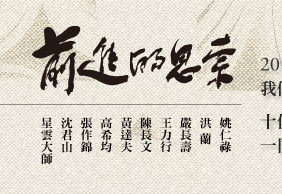 前進的思索
20
我們
十位
一同
姚仁祿
洪蘭
嚴長壽
王力行
陳長文
黃達夫
高希均
張作錦
沈君山
星雲大師